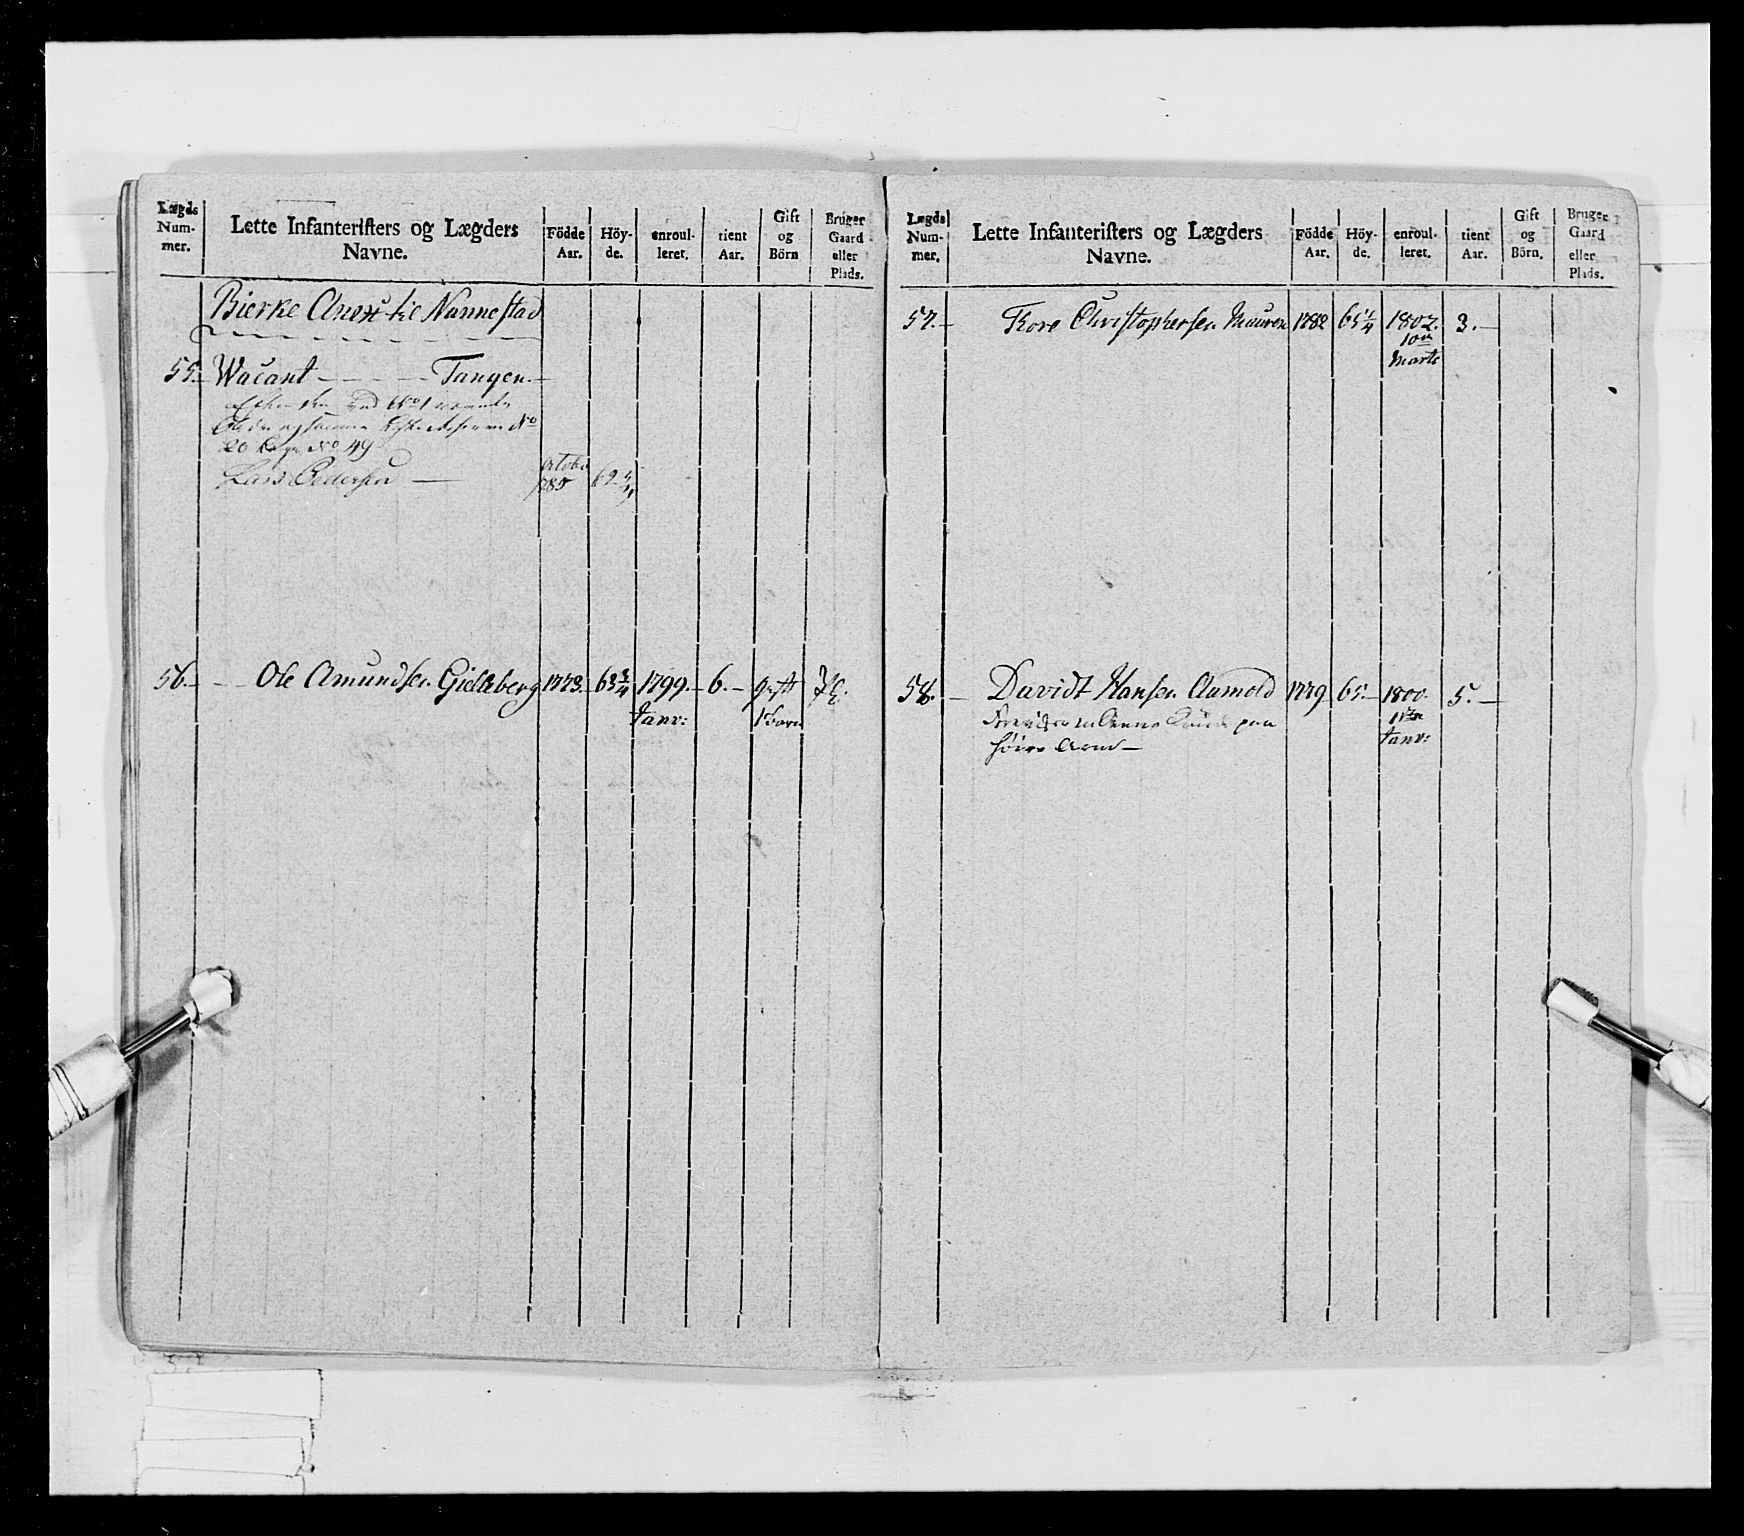 Lægds Num- mer.
Lette Infanterifters og Lægders Navne.
Födde Aar.
Höy- de.
enroul- leret.
tient Aar.
Gift og Börn
Bruger Gaard eller Plads.
Bierke Nannestad
55. Wacant — — — — Tangen. —
20 No 49
Lars Pedersen —
56. — — Ole Amundsen Gielleberg 1773. 63 3/4 1799. 6. — gift
Janv: 1 Barn
Lægds Num- mer.
Lette Infanterifters og Lægders Navne.
Födde Aar.
Höy- de.
enroul- leret.
tient Aar.
Gift og Börn.
Bruger Gaard eller Plads.
57. — Thore Christophersen Mauren 1782 65 1/4 1802. 3. —
10de
Marts
58. — Davidt Hansen Aamold 1779 65 — 1800. 5. —
Janv:
høire Arm —